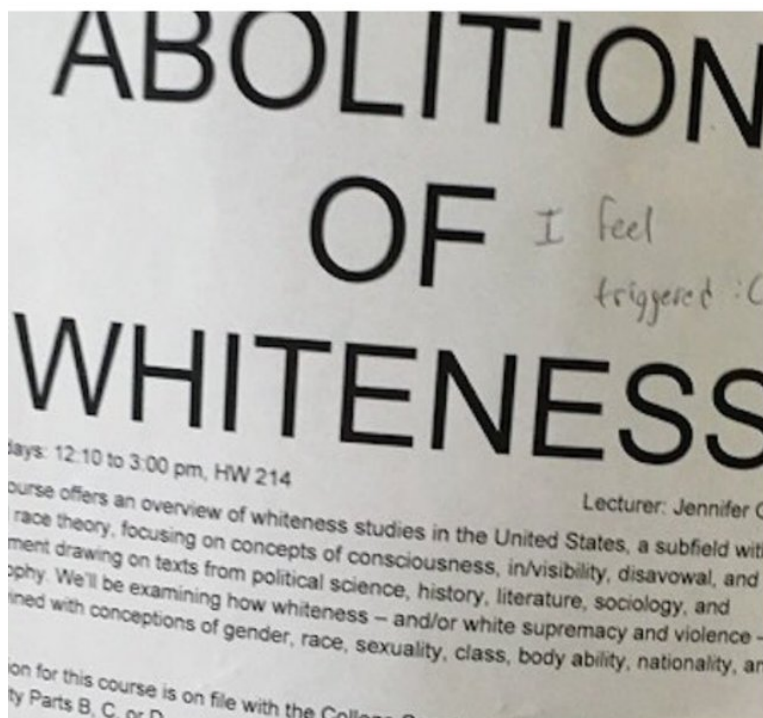 ABOLITION
OF
I feel
triggered :(
WHITENESS
days: 12:10 to 3:00 pm, HW 214
Lecturer: Jennifer
ourse offers an overview of whiteness studies in the United States, a subfield wit
race theory, focusing on concepts of consciousness, in/visibility, disavowal, and
ment drawing on texts from political science, history, literature, sociology, and
ophy. We'll be examining how whiteness – and/or white supremacy and violence –
ined with conceptions of gender, race, sexuality, class, body ability, nationality, an
on for this course is on file with the College
ty Parts B, C, or D